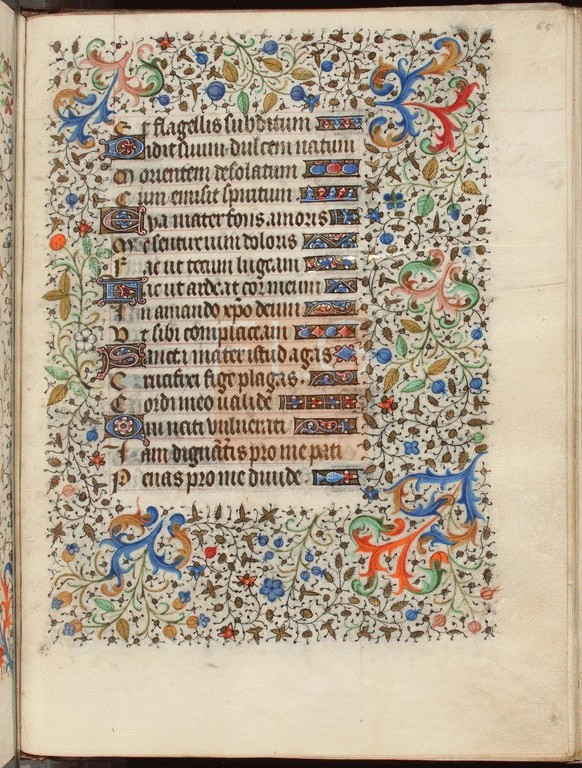 66
Et flagellis subditum
Uidit suum dulcem natum
Morientem desolatum
Cum emisit spiritum
Eya mater fons amoris
Me sentire uim doloris
Fac ut tecum lugeam
Fac ut ardeat cor meum
In amando xp̄o deum
Ut sibi complaceam
Sancta mater istud agas
Crucifixi fige plagas.
Cordi meo ualide
Qui nati vulnerati
Iam dignat̄is pro me pati
Penas pro me diuide.